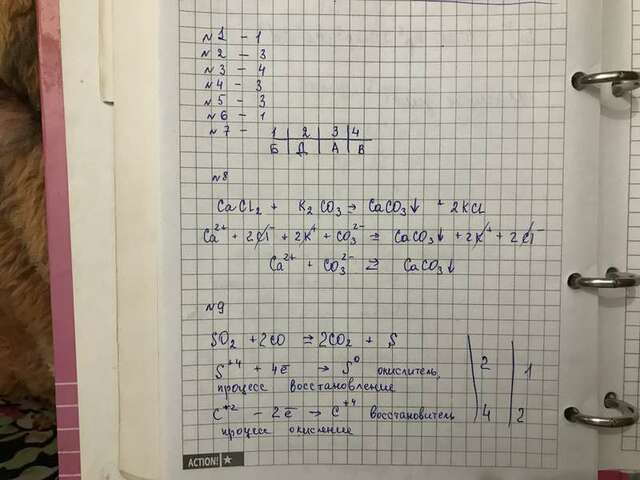 №1 - 1
№2 - 3
№3 - 4
№4 - 3
№5 - 3
№6 - 1
№7 - 1 2 3 4
Б Д А В
№8
CaCl2 + K2CO3 = CaCO3↓ + 2KCl
Ca2+ + 2Cl- + 2K+ + CO3 2- = CaCO3↓ + 2K+ + 2Cl-
Ca2+ + CO3 2- = CaCO3↓
№9
SO2 + 2CO = 2CO2 + S
S+4 + 4ē → S0 окислитель, 2 1
процесс восстановление
C+2 - 2ē → C+4 восстановитель 4 2
процесс окисление
ACTION!